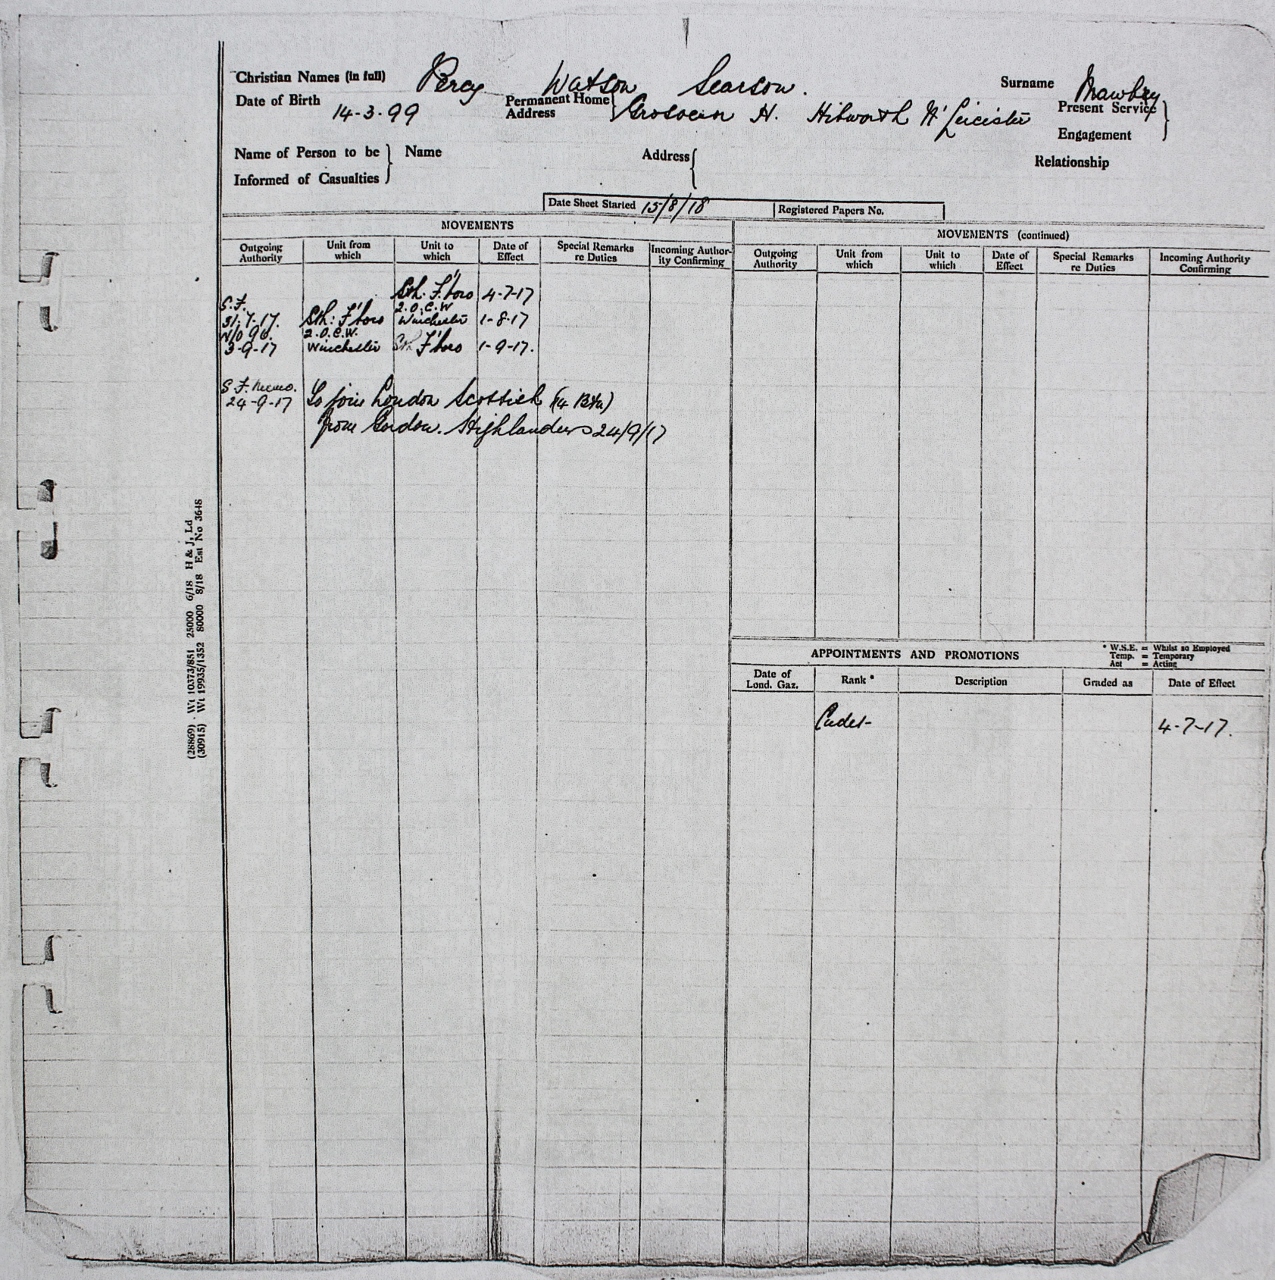 Christian Names (in full) Percy Watson Searson. Surname Mawbey
Date of Birth 14-3-99 Permanent Home Address Grosvenor H. Hibworth Nr Leicester Present Service
Engagement
Name of Person to be Informed of Casualties Name Address Relationship
Date Sheet Started 15/8/18 Registered Papers No.
MOVEMENTS
Outgoing Authority Unit from which Unit to which Date of Effect Special Remarks re Duties Incoming Authority Confirming
Sth. F'boro 4-7-17
S.F. 31.7.17. Sth: F'boro 2.O.C.W Winchester 1-8-17
3-9-17 2.O.C.W. Winchester Sth F'boro 1-9-17.
S.F. Memo. 24-9-17 To join London Scottish
from Gordon. Highlanders 24/9/17
MOVEMENTS (continued)
Outgoing Authority Unit from which Unit to which Date of Effect Special Remarks re Duties Incoming Authority Confirming
APPOINTMENTS AND PROMOTIONS
* W.S.E. = Whilst so Employed
Temp. = Temporary
Act = Acting
Date of Lond. Gaz. Rank * Description Graded as Date of Effect
Cadet- 4-7-17.
(28869) . Wt 10373/851 25000 6/18 H & J, Ld
(30915) Wt 19935/1352 80000 8/18 Est No 3648